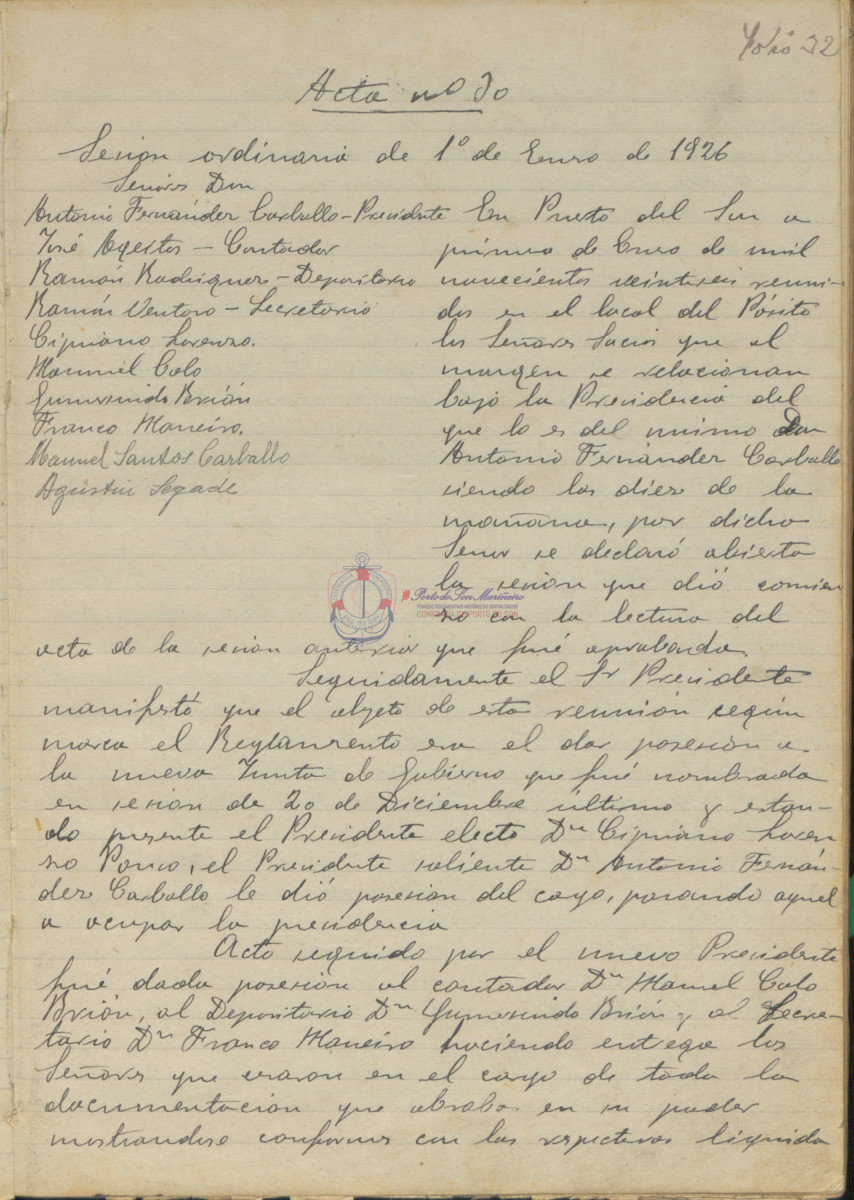 Folio 32
Acta nº 30
Sesion ordinaria de 1º de Enero de 1926
Señores Don
Antonio Fernández Carballo - Presidente
José Agestos - Contador
Ramón Rodriguez - Depositario
Ramón Ventoso - Secretario
Cipriano Lorenzo.
Manuel Colo
Gumersindo Brión
Franco Maneiro.
Manuel Santos Carballo
Agustin Segade
En Puerto del Son a
primero de Enero de mil
novecientos veintiseis reuni-
dos en el local del Pósito
los Señores Socios que al
margen se relacionan
bajo la Presidencia del
que lo es del mismo Don
Antonio Fernández Carballo
siendo las diez de la
mañana, por dicho
Señor se declaró abierta
la sesion que dió comien
zo con la lectura del
acta de la sesion anterior que fué aprobada.
Porto do Son Mariñeiro
FONDOS DOCUMENTAIS HISTÓRICOS DIXITALIZADOS
CONFRARÍA DE PORTO DO SON
Seguidamente el Sr Presidente
manifestó que el objeto de esta reunión según
marca el Reglamento era el dar posesión a
la nueva Junta de Gobierno que fué nombrada
en sesion de 20 de Diciembre último y estan-
do presente el Presidente electo Dn Cipriano Loren
zo Ponso, el Presidente saliente Dn Antonio Fernán-
dez Carballo le dió posesion del cargo, pasando aquel
a ocupar la presidencia
Acto seguido por el nuevo Presidente
fué dada posesión al contador Dn Manuel Colo
Brión, al Depositario Dn Gumersindo Brión y al Secre-
tario Dn Franco Maneiro haciendo entrega los
Señores que cesaron en el cargo de toda la
documentacion que obraba en su poder
mostrandose conformes con las respectivas liquida